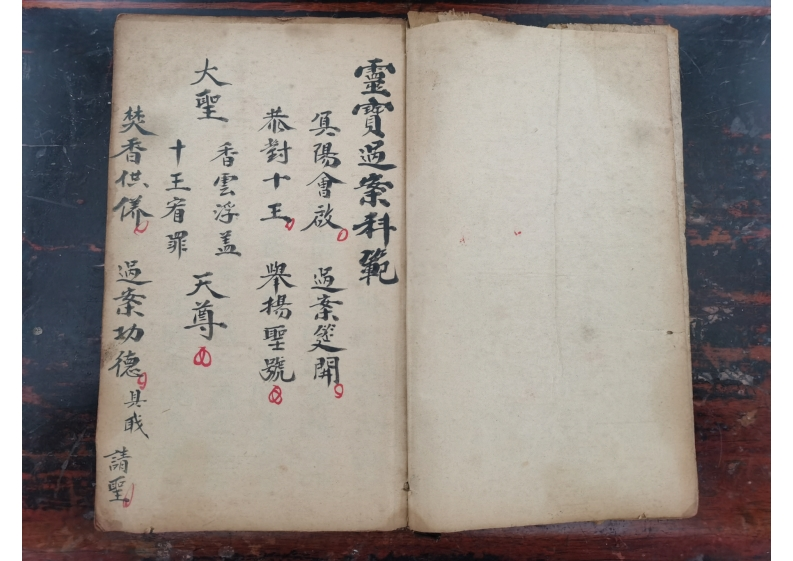 靈寶过案科範
冥陽會啟 过案筵開
恭對十王 舉揚聖號
大聖 香雲浮盖 十王宥罪 天尊
焚香供俻 过案功德 具戝 請聖